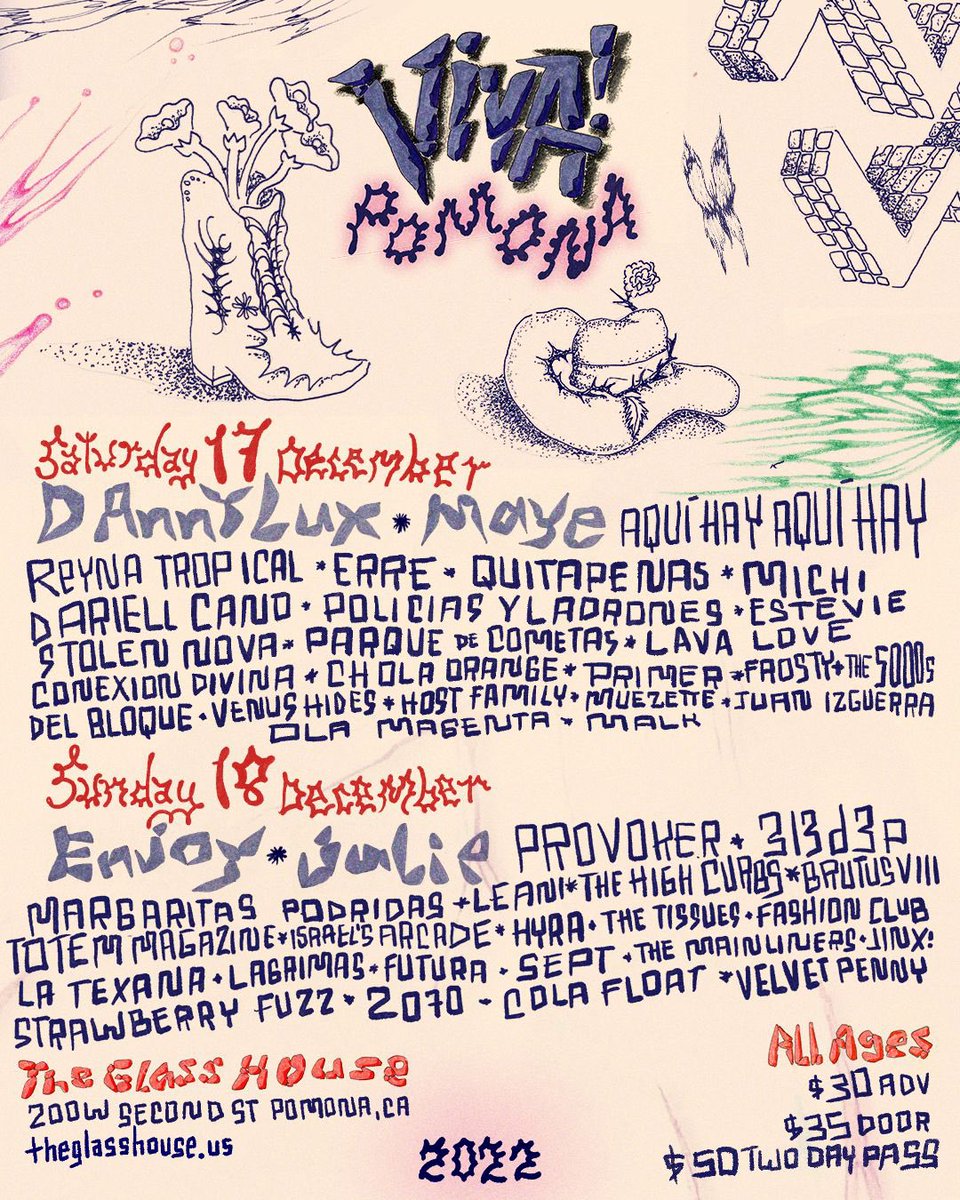 VIVA!
POMONA
Saturday 17 December
DAnnY Lux * Maye AQUÍ HAY AQUÍ HAY
REYNA TROPICAL * ERRE * QUITAPENAS * MICHI
DARIELL CANO * POLICIAS Y LADRONES * ESTEVIE
STOLEN NOVA * PARQUE DE COMETAS * LAVA LOVE
CONEXION DIVINA * CHOLA ORANGE * PRIMER * FROSTY * THE SOODS
DEL BLOQUE * VENUS HIDES * HOST FAMILY * MUEZETTE * JUAN IZGUERRA
OLA MAGENTA * MALK
Sunday 18 December
Enjoy * Julie PROVOKER * 313d3p
MARGARITAS PODRIDAS * LEANI * THE HIGH CURBS * BRUTUS VIII
TOTEM MAGAZINE * ISRAEL'S ARCADE * HYRA * THE TISSUES * FASHION CLUB
LA TEXANA * LAGRIMAS * FUTURA * SEPT * THE MAINLINERS * JINX!
STRAWBERRY FUZZ * 2070 - COLA FLOAT * VELVET PENNY
The Glass House
200 W SECOND ST POMONA, CA
theglasshouse.us
2022
All Ages
$30 ADV
$35 DOOR
$50 TWO DAY PASS